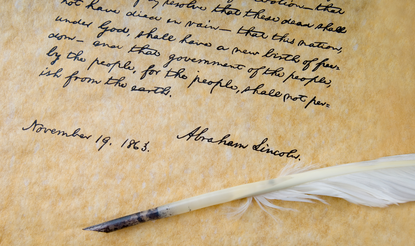 resolve that these dead shall
not have died in vain— that this nation,
under God, shall have a new birth of free-
dom— and that government of the people,
by the people, for the people, shall not per-
ish from the earth.
November 19, 1863.
Abraham Lincoln.